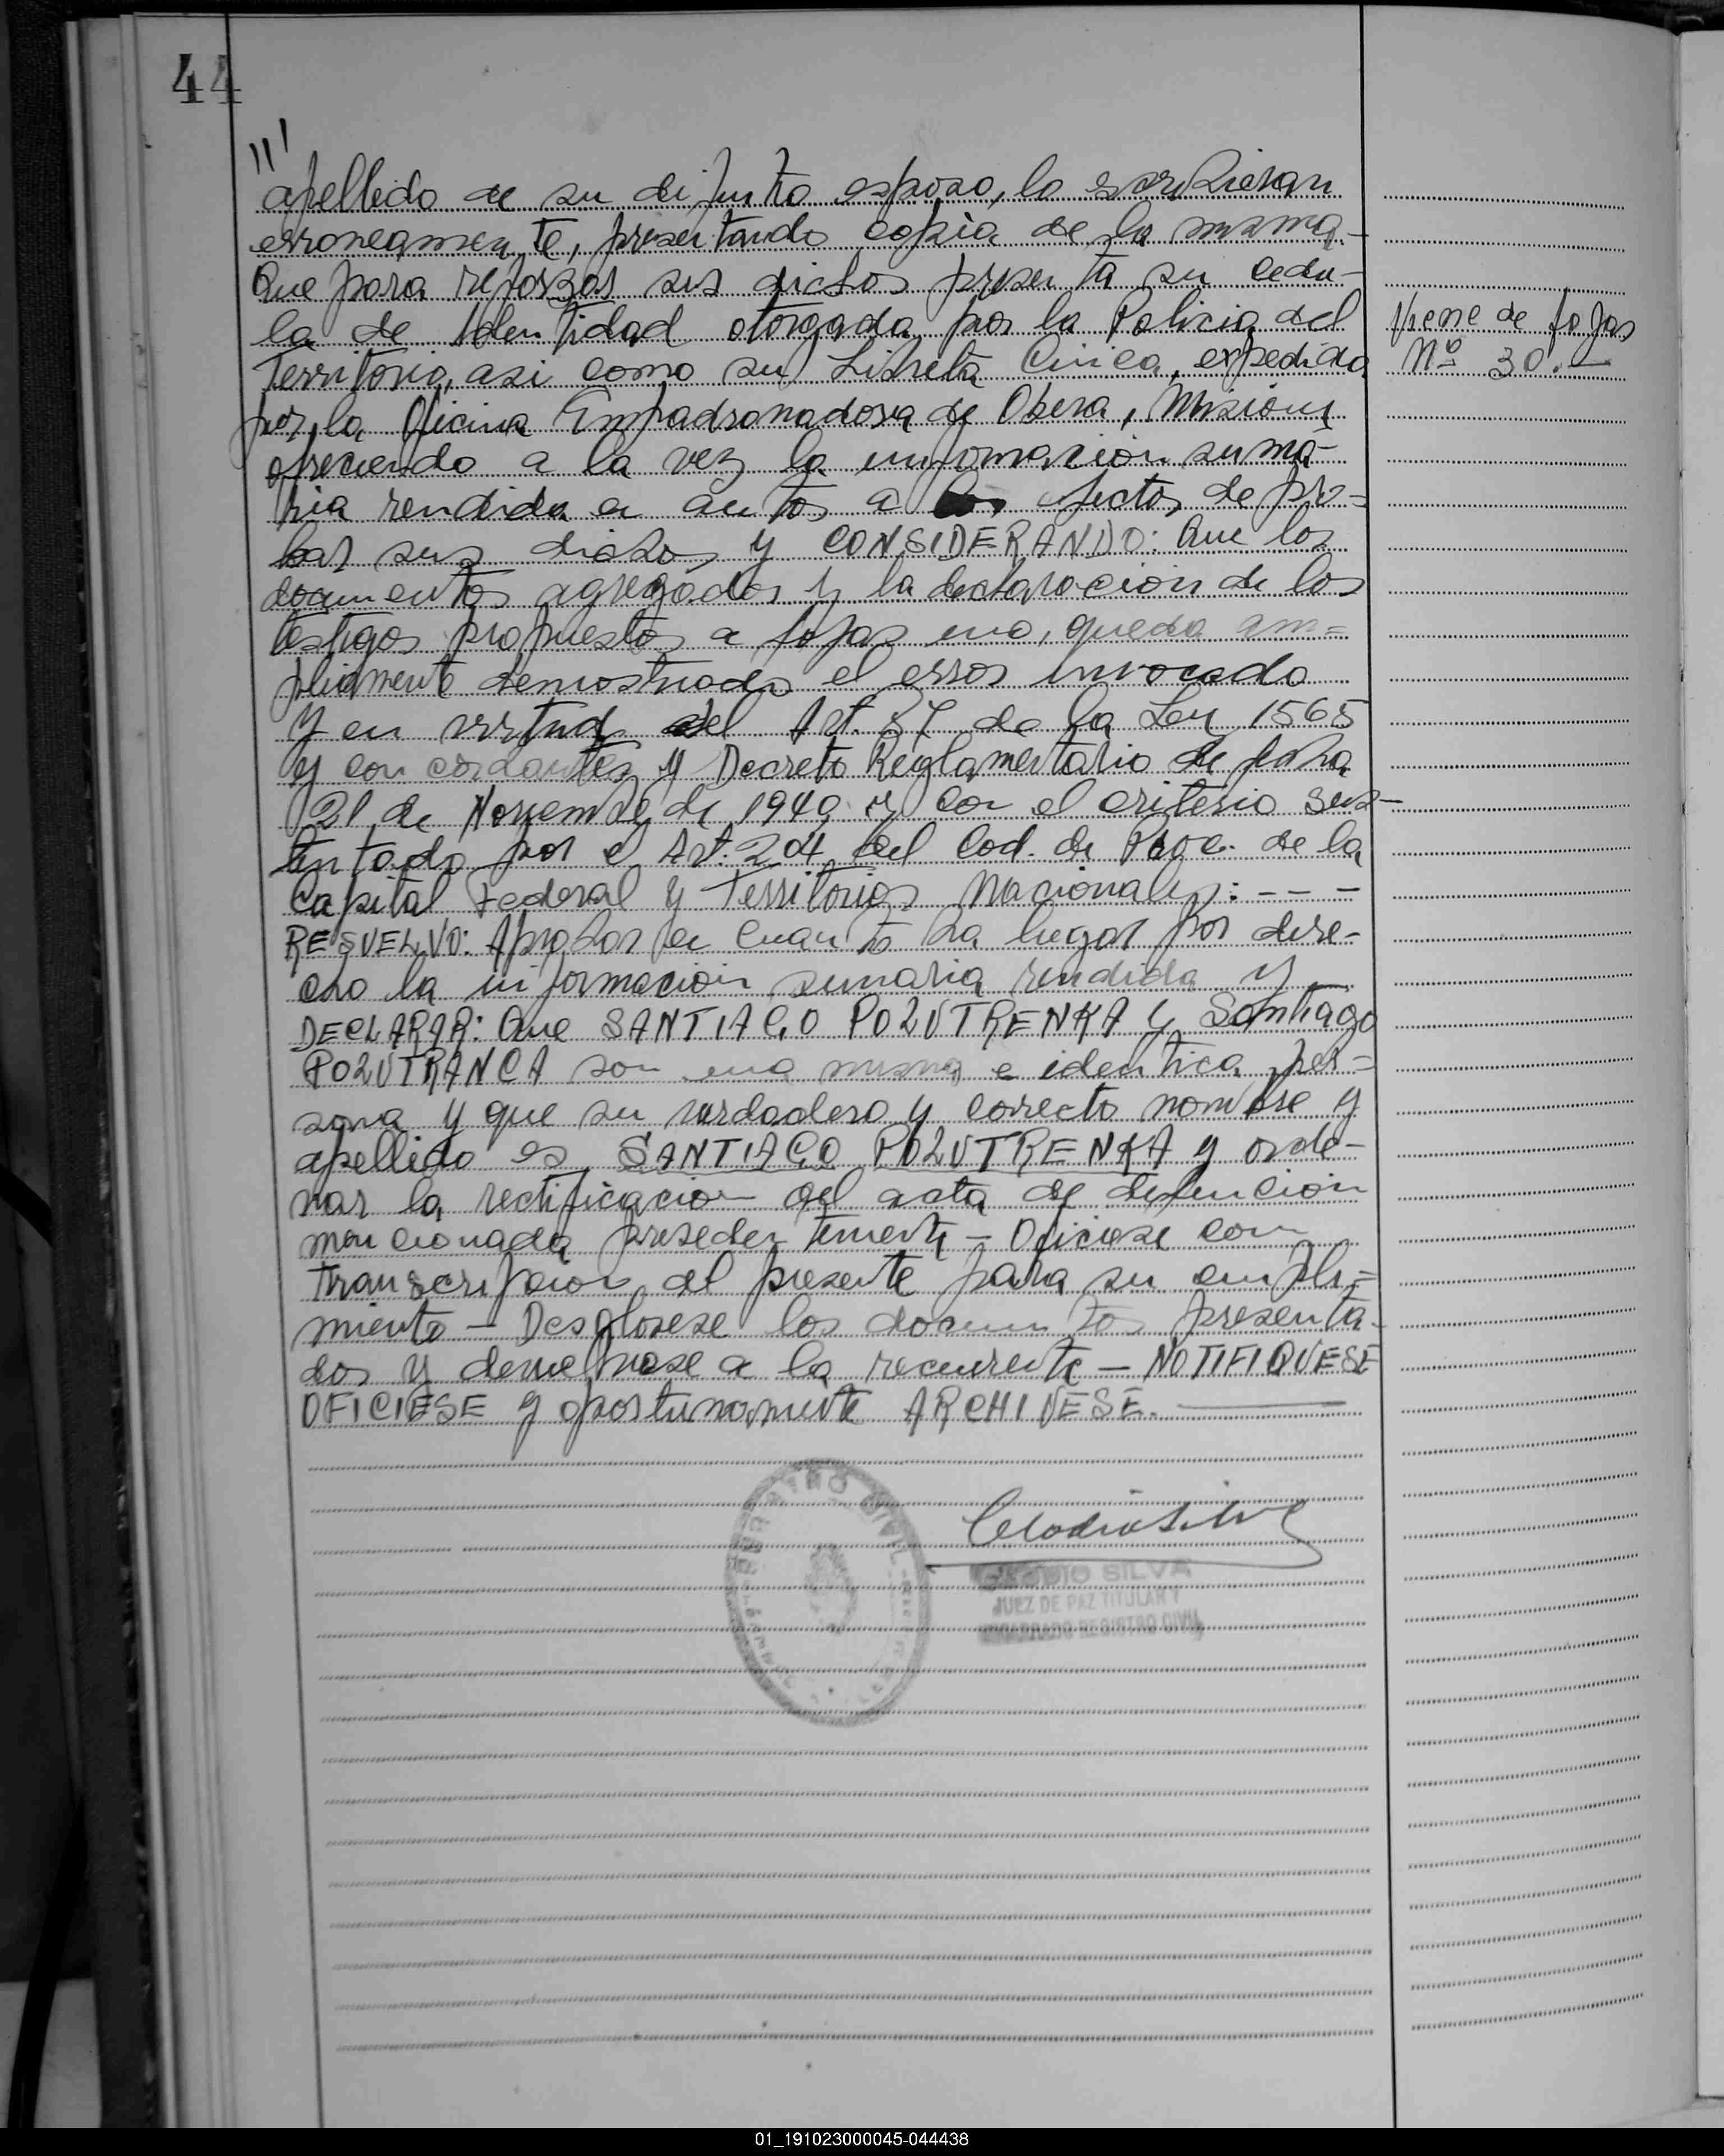 44
"'
apellido de su difunto esposo, lo escribieran
erroneamente, presentando copia de la misma-
Que para reforzar sus dichos presenta su cedu-
la de Identidad otorgada por la Policia del
Territorio, asi como su Libreta Civica, expedida
Viene de fojas
Nº 30.-
por la Oficina Empadronadora de Obera, Misiones
ofreciendo a la vez la informacion suma-
ria rendida en autos a los efectos de pro-
bar sus dichos y CONSIDERANDO: Que los
documentos agregados y la declaracion de los
testigos propuestos a fojas uno, queda am=
pliamente demostrado el error invocado
Y en virtud del Art. 87 de la Ley 1565
y concordantes y Decreto Reglamentario de fecha
21 de Noviembre de 1940 y con el criterio sus-
tentado por el Art. 204 del Cod. de Proc. de la
Capital Federal y Territorios Nacionales: - - -
RESUELVO: Aprobar en cuanto ha lugar por dere-
cho la informacion sumaria rendida y
DECLARAR: Que SANTIAGO POLUTRENKA y Santiago
POLUTRANCA son una misma e identica per=
sona y que su verdadero y correcto nombre y
apellido es SANTIAGO POLUTRENKA y orde-
nar la rectificacion del acta de defuncion
mencionada presedentemente - Oficiese con
transcripcion del presente para su cumpli=
miento - Desglosese los documentos presenta-
dos y devuelvase a la recurrente - NOTIFIQUESE
OFICIESE y oportunamente ARCHIVESE.
Clodio Silva
REGISTRO CIVIL
CLODIO SILVA
JUEZ DE PAZ TITULAR Y
ENCARGADO REGISTRO CIVIL
01_191023000045-044438